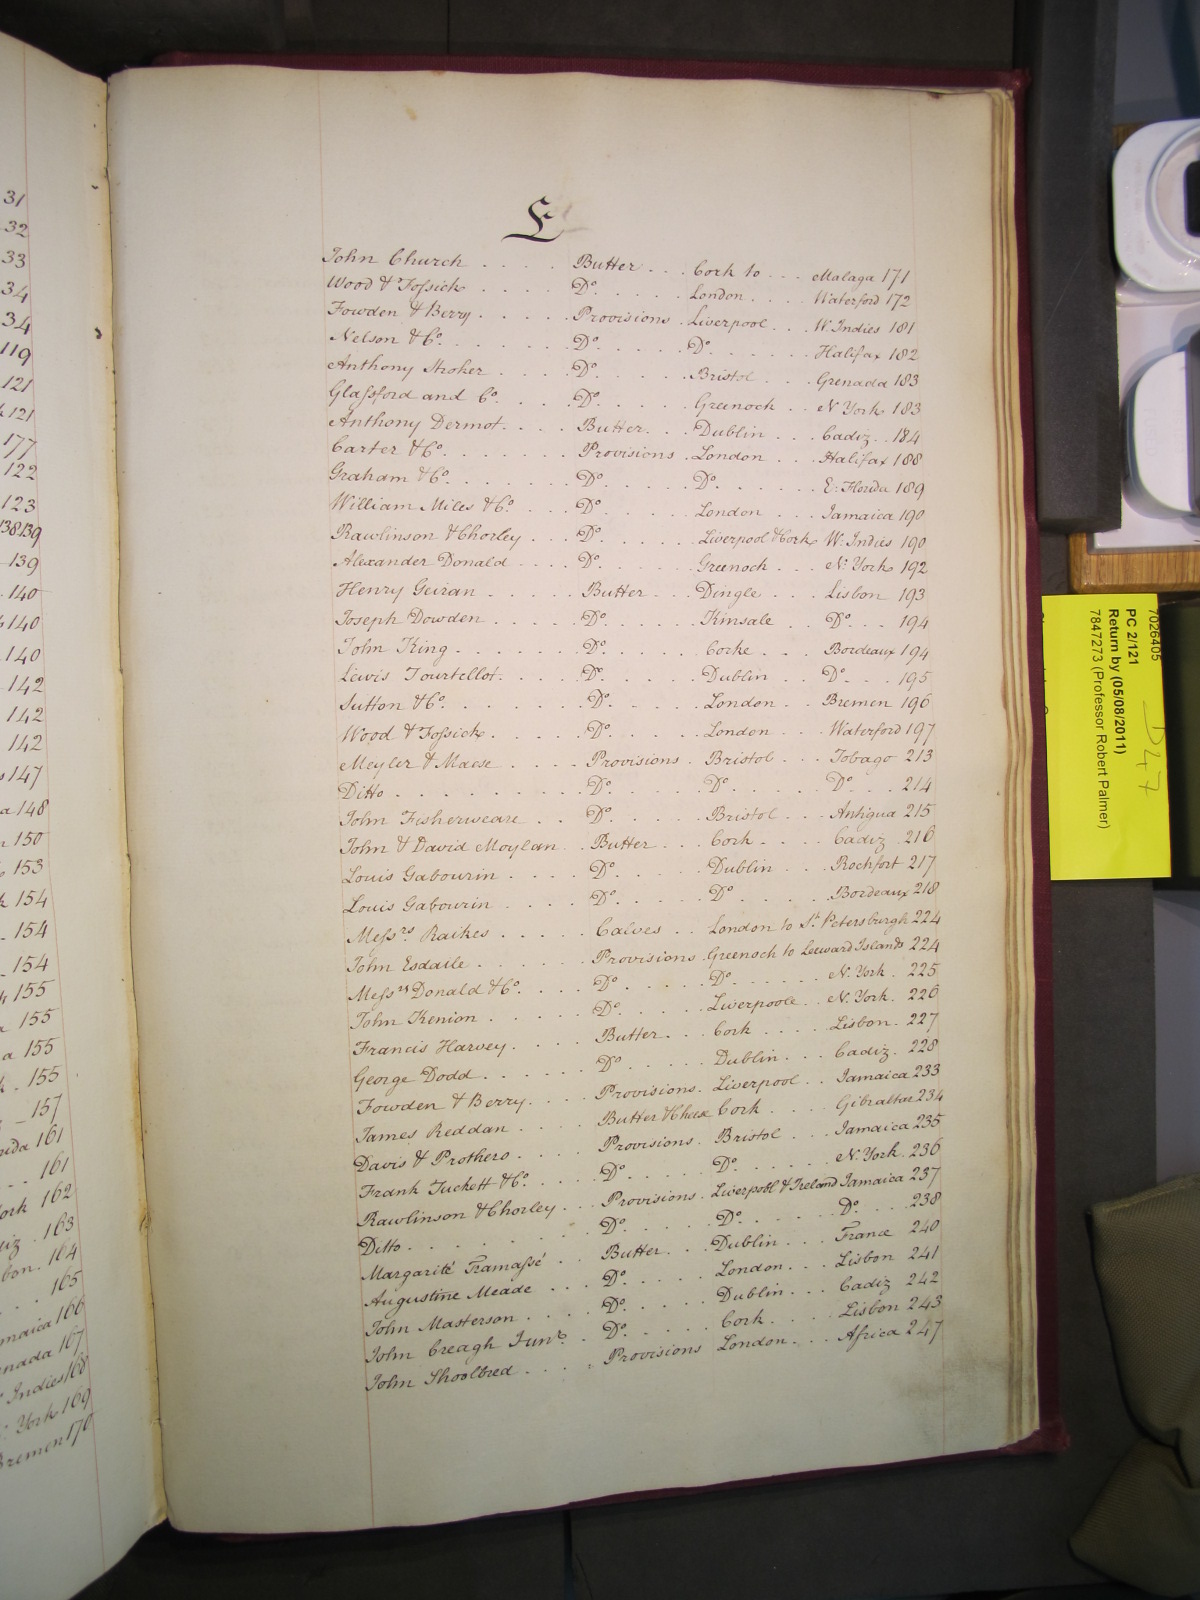 31
32
33
34
34
119
121
121
177
122
123
138.139
139
140
140
140
142
142
142
147
148
150
153
154
154
154
155
155
155
155
157
161
161
162
163
164
165
166
167
Indies 168
York 169
Bremen 170
E
John Church . . . . Butter . . . Cork to . . . Malaga 171
Wood & Fossick . . . . Do. . . . . London . . . . Waterford 172
Fowden & Berry . . . . . Provisions . Liverpool . . . W. Indies 181
Nelson & Co. . . . . . Do. . . . . Do. . . . . . Halifax 182
Anthony Stroker . . . . Do. . . . . Bristol . . . Grenada 183
Glassford and Co. . . . . Do. . . . . Greenock . . N York 183
Anthony Dermot . . . . Butter . . . Dublin . . . Cadiz . . 184
Carter & Co. . . . . . . Provisions . London . . . Halifax 188
Graham & Co. . . . . . Do. . . . . Do. . . . . . E. Florida 189
William Miles & Co. . . . Do. . . . . London . . . Jamaica 190
Rawlinson & Chorley . . . Do. . . . . Liverpool & Cork W. Indies 190
Alexander Donald . . . . Do. . . . . Greenock . . . N. York 192
Henry Geiran . . . . Butter . . . Dingle . . . Lisbon 193
Joseph Dowden . . . . Do. . . . . Kinsale . . Do. . . 194
John King . . . . . . Do. . . . . Corke . . . Bordeaux 194
Lewis Tourtellot . . . . Do. . . . . Dublin . . Do. . . 195
Sutton & Co. . . . . . Do. . . . . London . . Bremen 196
Wood & Fossick . . . . Do. . . . . London . . . Waterford 197
Meyler & Maese . . . . Provisions . Bristol . . . Tobago 213
Ditto . . . . . . . . Do. . . . . Do. . . . . Do. . . 214
John Fisherweare . . Do. . . . . Bristol . . . Antigua 215
John & David Moylan . Butter . . . Cork . . . . Cadiz . 216
Louis Gabourin . . . . Do. . . . . Dublin . . . Rochfort 217
Louis Gabourin . . . . Do. . . . . Do. . . . . Bordeaux 218
Messrs. Raikes . . . . . Calves . . London to St. Petersburgh 224
John Esdaile . . . . . Provisions . Greenock to Leeward Islands 224
Messrs Donald & Co. . . . Do. . . . . Do. . . . . N. York . 225
John Kenion . . . . . Do. . . . . Liverpoole . . N. York . 226
Francis Harvey . . . . Butter . . . Cork . . . . Lisbon . 227
George Dodd . . . . . Do. . . . . Dublin . . . Cadiz . 228
Fowden & Berry . . . . Provisions . Liverpool . . Jamaica 233
James Reddan . . . . Butter & Cheese Cork . . . . Gibraltar 234
Davis & Prothero . . . . Provisions . Bristol . . . Jamaica 235
Frank Tuckett & Co. . . . Do. . . . . Do. . . . . N. York . 236
Rawlinson & Chorley . . . Provisions . Liverpool & Ireland Jamaica 237
Ditto . . . . . . . Do. . . . . Do. . . . . Do. . . 238
Margarité Framassé . . Butter . . . Dublin . . . France 240
Augustine Meade . . . Do. . . . . London . . . Lisbon 241
John Masterson . . . . Do. . . . . Dublin . . . Cadiz 242
John Creagh Junr. . . Do. . . . . Cork . . . . Lisbon 243
John Shoolbred . . . . Provisions London . . . Africa 247
7026405
PC 2/121
Return by (05/08/2011)
7847273 (Professor Robert Palmer)
D47